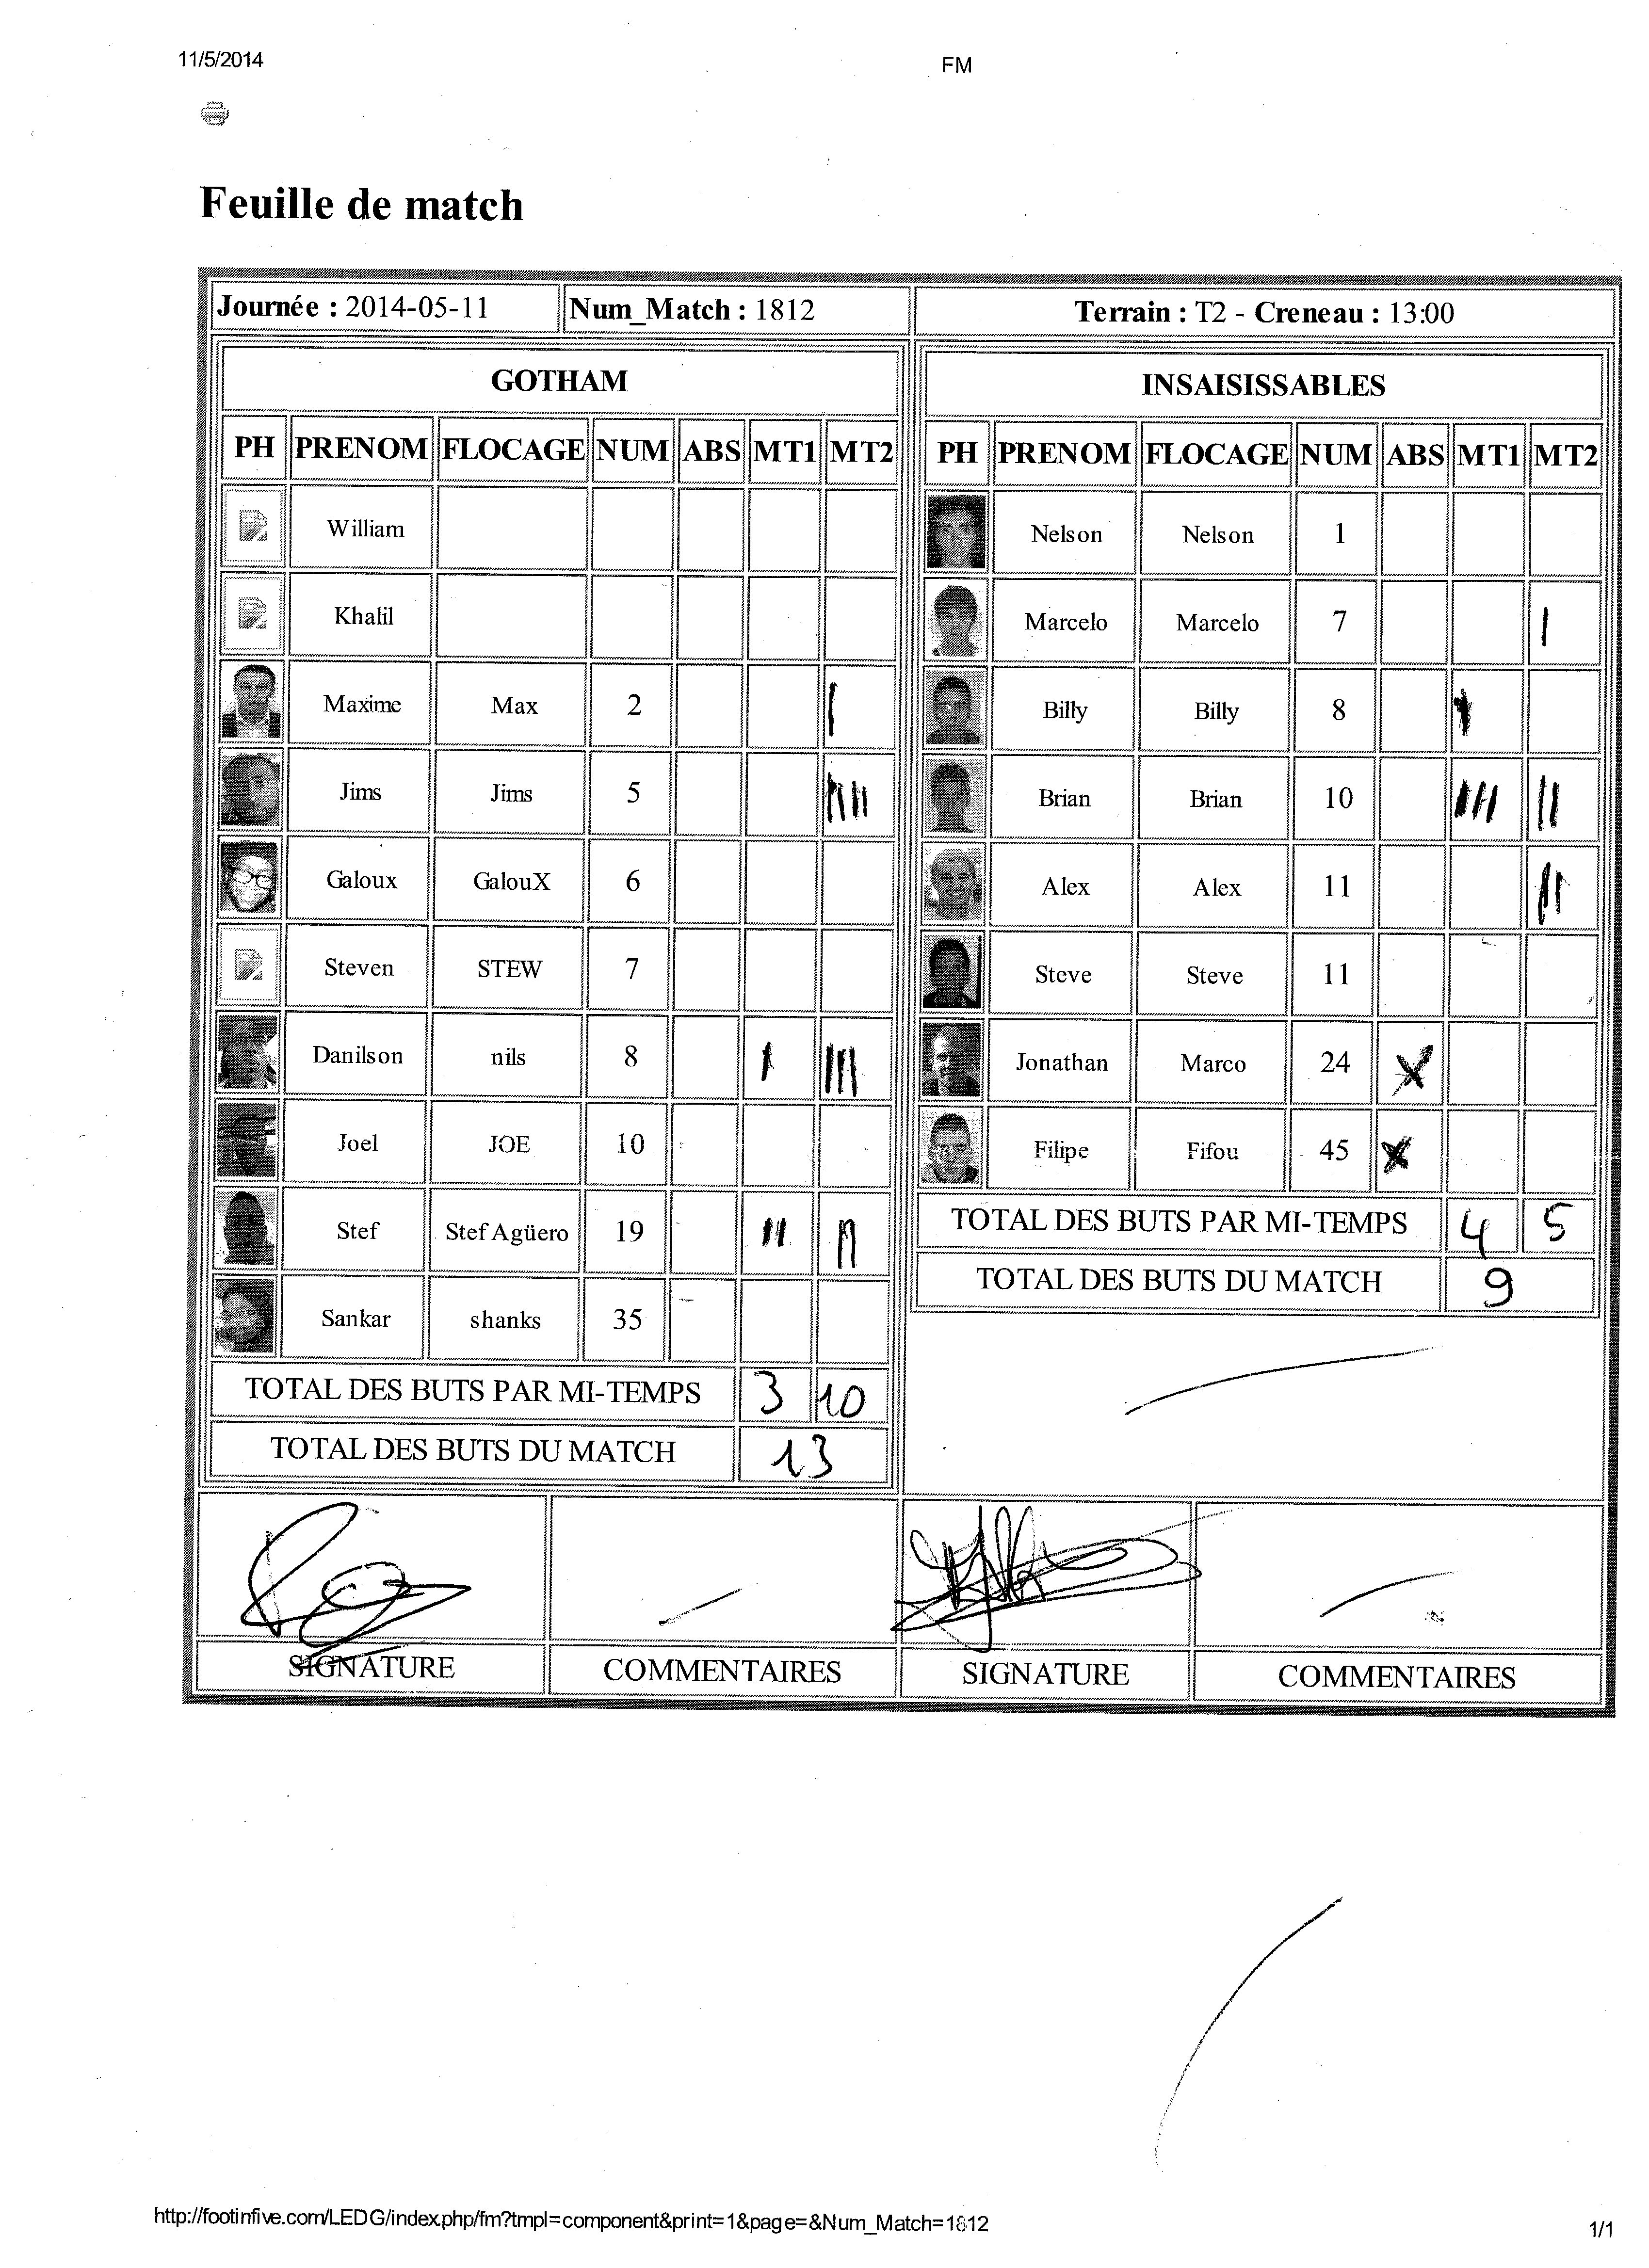 11/5/2014 FM
Feuille de match
Journée : 2014-05-11 Num_Match : 1812 Terrain : T2 - Creneau : 13:00
GOTHAM
PH PRENOM FLOCAGE NUM ABS MT1 MT2
William
Khalil
Maxime Max 2 |
Jims Jims 5 ||||
Galoux GalouX 6
Steven STEW 7
Danilson nils 8 | |||
Joel JOE 10
Stef Stef Agüero 19 || ||
Sankar shanks 35
TOTAL DES BUTS PAR MI-TEMPS 3 10
TOTAL DES BUTS DU MATCH 13
INSAISISSABLES
PH PRENOM FLOCAGE NUM ABS MT1 MT2
Nelson Nelson 1
Marcelo Marcelo 7 |
Billy Billy 8 |
Brian Brian 10 ||| ||
Alex Alex 11 ||
Steve Steve 11
Jonathan Marco 24 X
Filipe Fifou 45 X
TOTAL DES BUTS PAR MI-TEMPS 4 5
TOTAL DES BUTS DU MATCH 9
SIGNATURE COMMENTAIRES SIGNATURE COMMENTAIRES
http://footinfive.com/LEDG/index.php/fm?tmpl=component&print=1&page=&Num_Match=1812 1/1